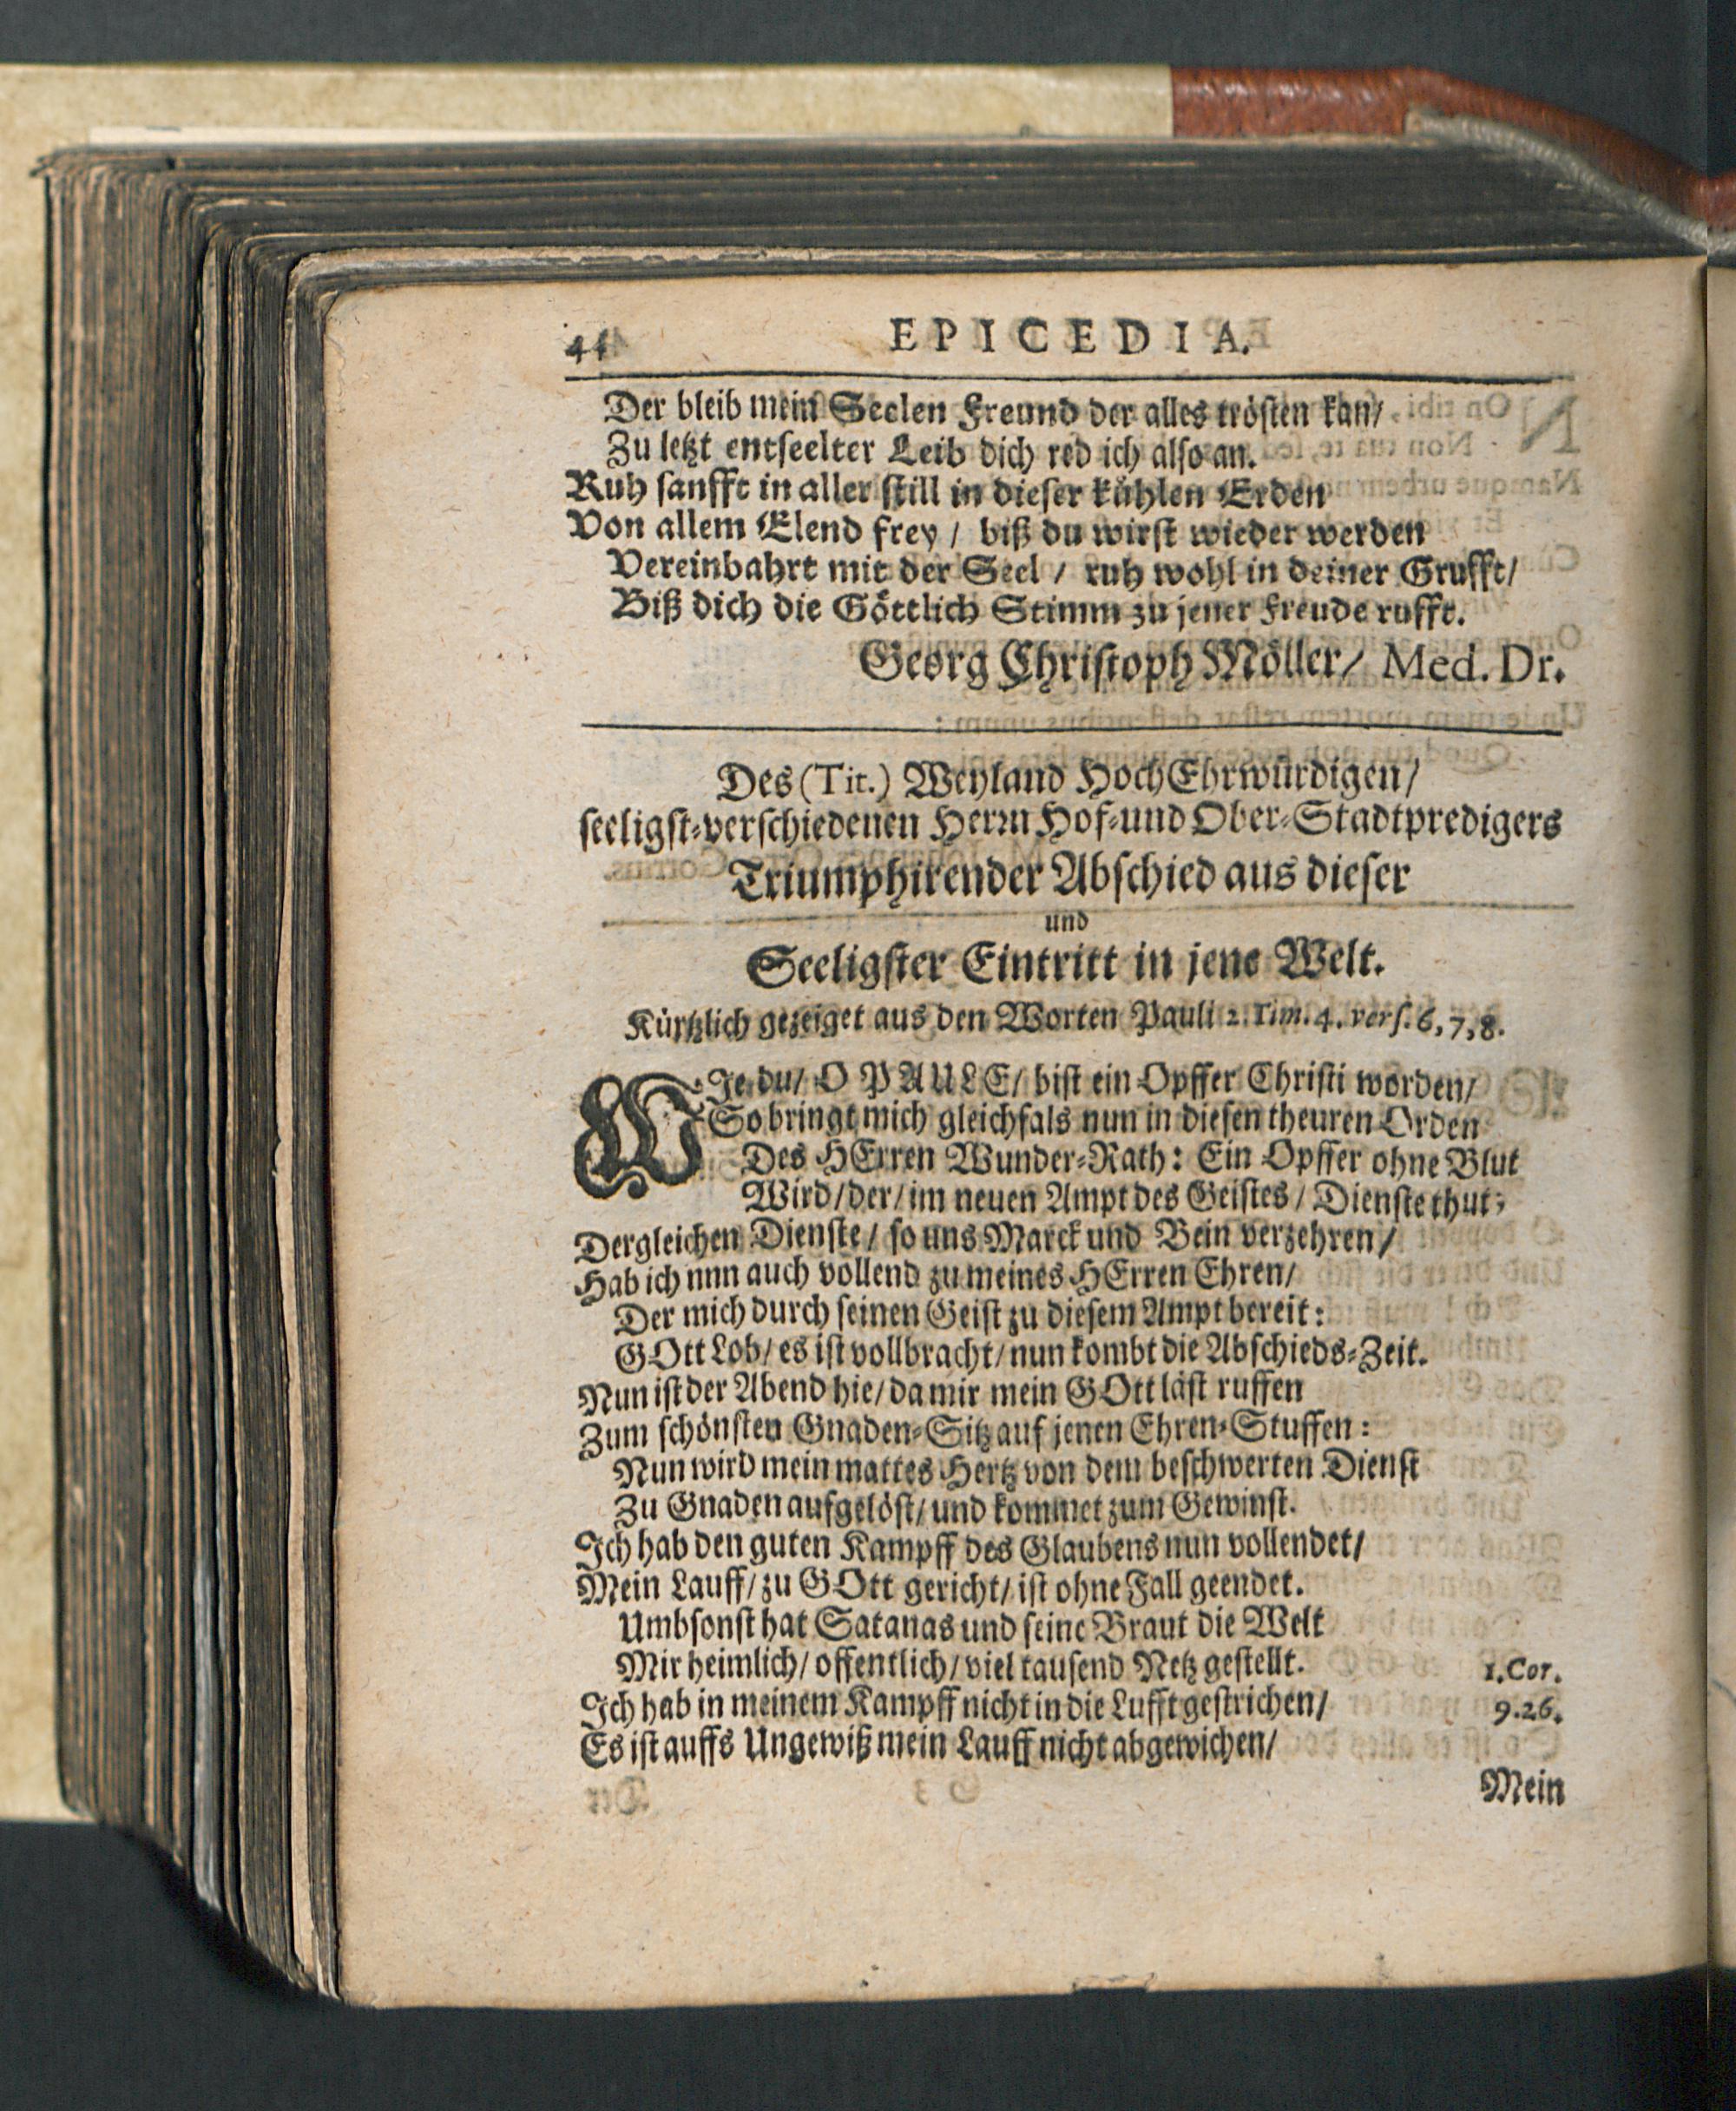 EPICEDIA.
Der bleib mein Seelen Freund der alles trösten kan/
Zu letzt entseelter Leib dich red ich also an.
Ruh sanfft in aller still in dieser kühlen Erden
Von allem Elend frey / biß du wirst wieder werden
Vereinbahrt mit der Seel / ruh wohl in deiner Grufft/
Biß dich die Göttlich Stimm zu jener Freude rufft.
Georg Christoph Möller/ Med. Dr.
Des (Tit.) Weyland HochEhrwürdigen/
seeligst-verschiedenen Herrn Hof-und Ober-Stadtpredigers
Triumphirender Abschied aus dieser
und
Seeligster Eintritt in jene Welt.
Kürtzlich gezeiget aus den Worten Pauli 2. Tim. 4. vers. 6, 7, 8.
WJe du/ O PAULE/ bist ein Opffer Christi worden/
So bringt mich gleichfals nun in diesen theuren Orden
Des HErren Wunder-Rath: Ein Opffer ohne Blut
Wird/der/im neuen Ampt des Geistes / Dienste thut;
Dergleichen Dienste / so uns Marck und Bein verzehren/
Hab ich nun auch vollend zu meines HErren Ehren/
Der mich durch seinen Geist zu diesem Ampt bereit:
GOtt Lob/ es ist vollbracht/ nun kombt die Abschieds-Zeit.
Nun ist der Abend hie/ da mir mein GOtt läst ruffen
Zum schönsten Gnaden-Sitz auf jenen Ehren-Stuffen:
Nun wird mein mattes Hertz von dem beschwerten Dienst
Zu Gnaden aufgelöst/ und kommet zum Gewinst.
Jch hab den guten Kampff des Glaubens nun vollendet/
Mein Lauff/ zu GOtt gericht/ ist ohne Fall geendet.
Umbsonst hat Satanas und seine Braut die Welt
Mir heimlich/ offentlich/ viel tausend Netz gestellt. 1. Cor.
Jch hab in meinem Kampff nicht in die Lufft gestrichen/ 9.26.
Es ist auffs Ungewiß mein Lauff nicht abgewichen/
Mein